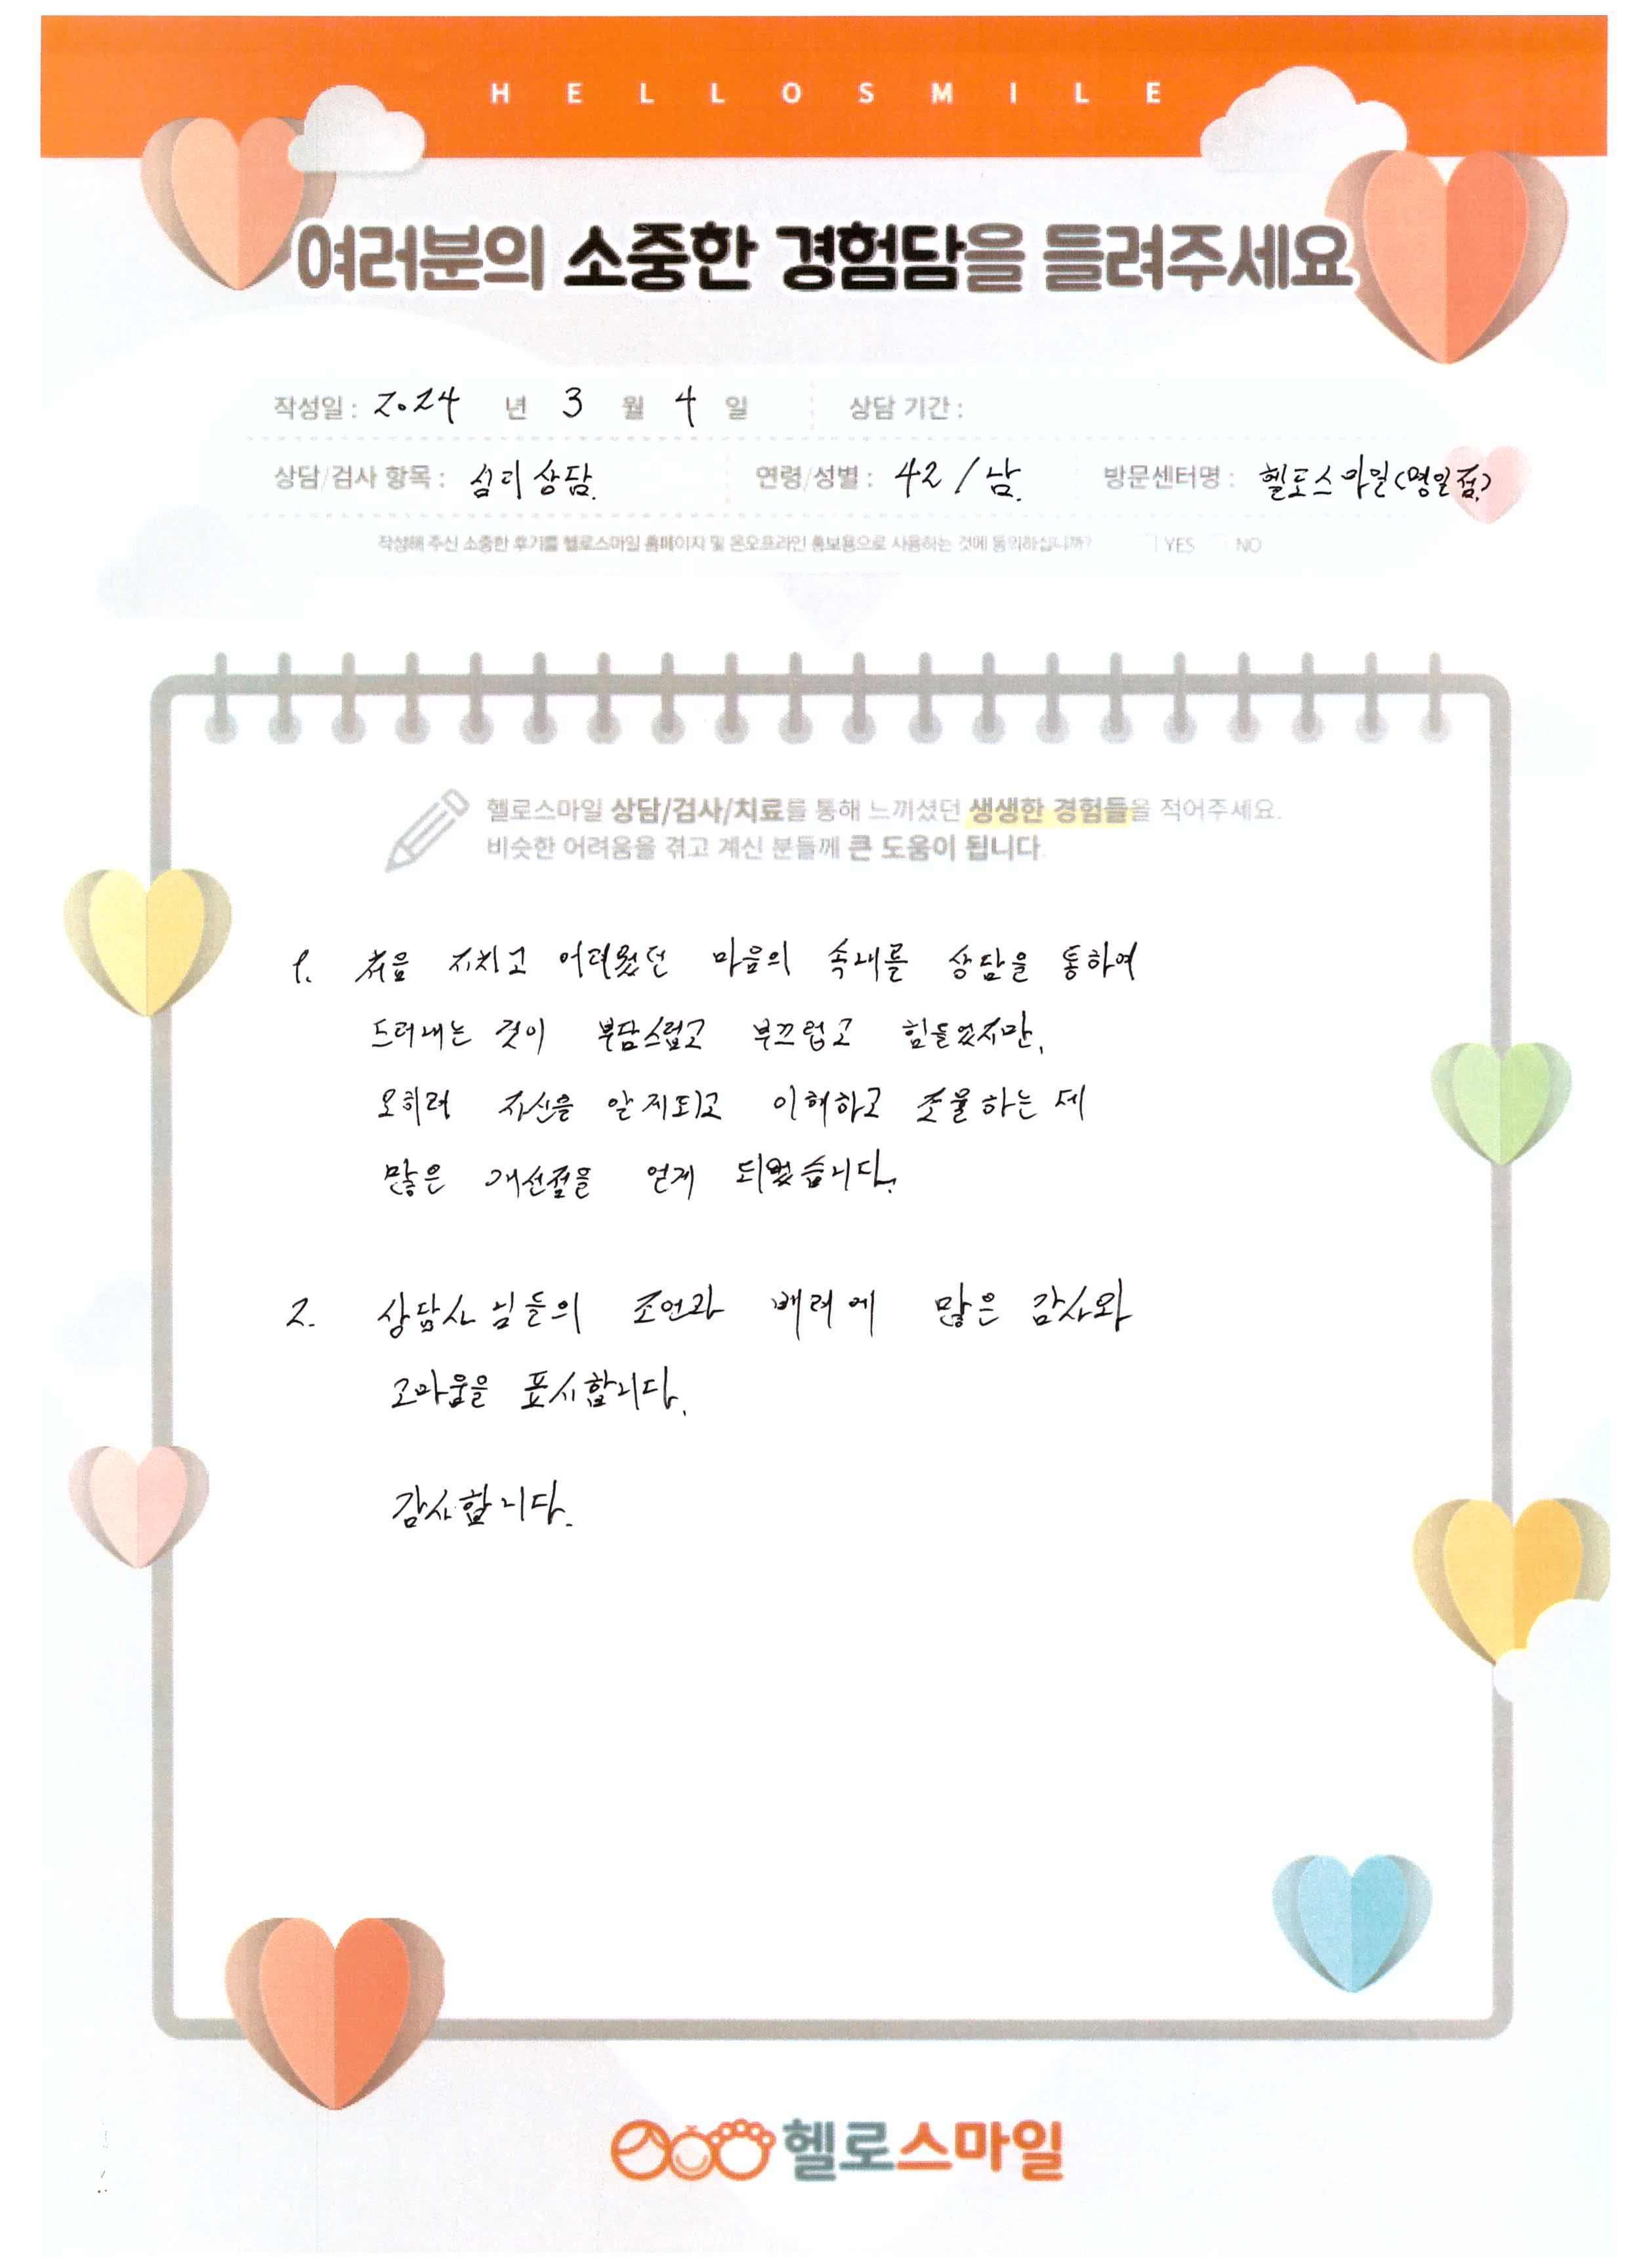 HELLOSMILE
여러분의 소중한 경험담을 들려주세요
작성일 : 2024 년 3 월 4 일 상담 기간 :
상담/검사 항목 : 심리상담. 연령/성별 : 42 / 남. 방문센터명 : 헬로스마일(명일점.)
작성해 주신 소중한 후기를 헬로스마일 홈페이지 및 온오프라인 홍보용으로 사용하는 것에 동의하십니까? YES NO
헬로스마일 상담/검사/치료를 통해 느끼셨던 생생한 경험들을 적어주세요.
비슷한 어려움을 겪고 계신 분들께 큰 도움이 됩니다.
1. 처음 지치고 어려웠던 마음의 속내를 상담을 통하여
드러내는 것이 부담스럽고 부끄럽고 힘들었지만,
오히려 자신을 알게되고 이해하고 조율하는 데
많은 개선점을 얻게 되었습니다.
2. 상담사님들의 조언과 배려에 많은 감사와
고마움을 표시합니다.
감사합니다.
헬로스마일